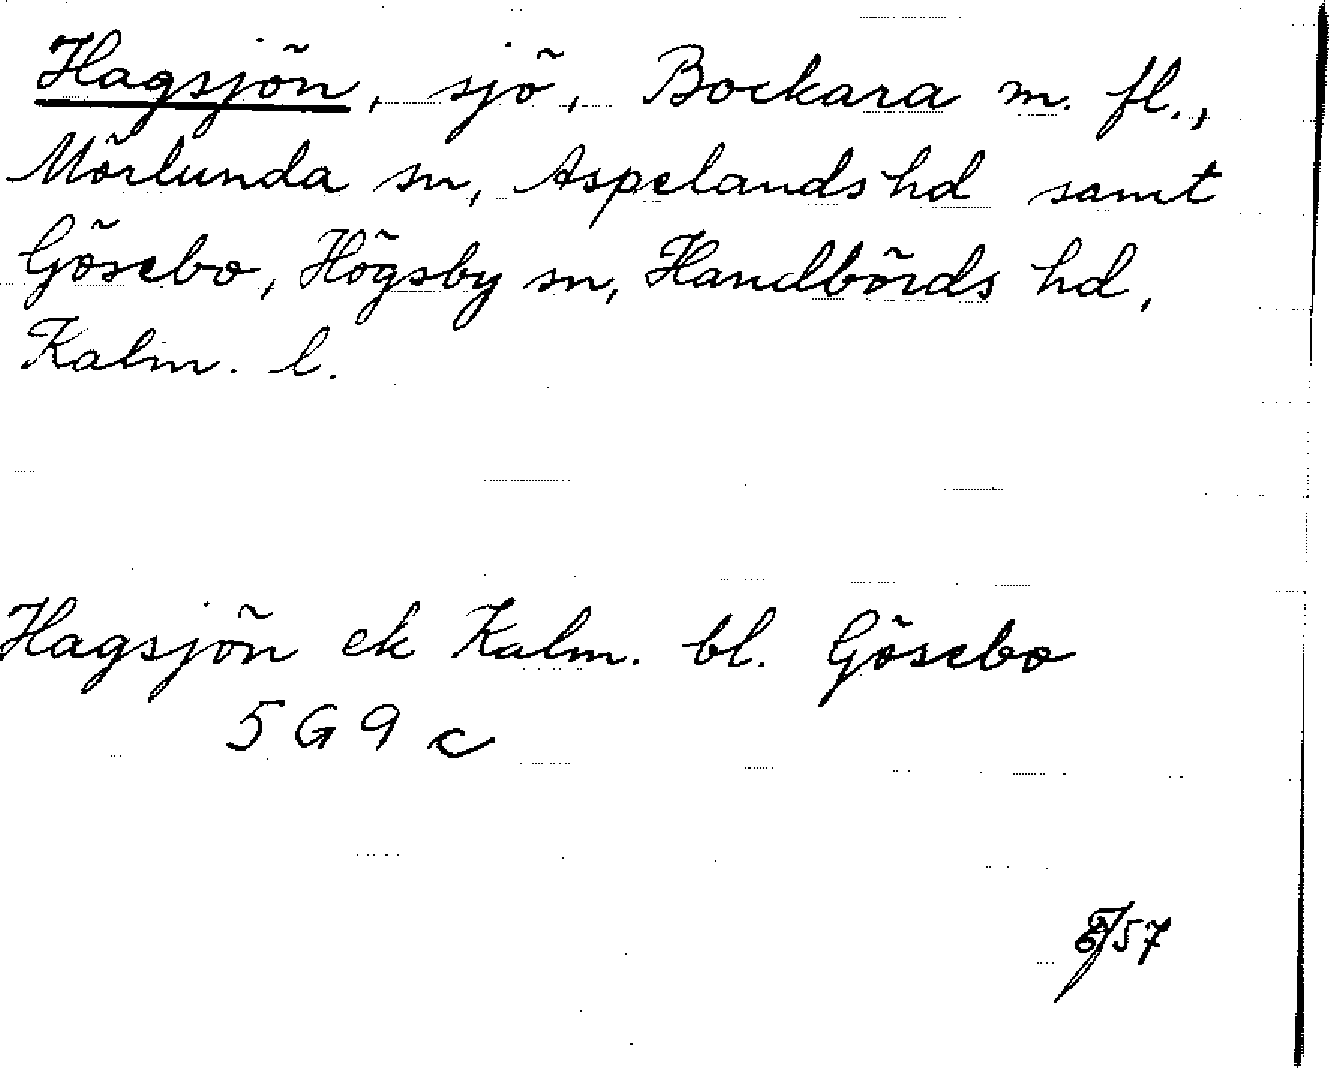 Hagsjön, sjö, Bockara m. fl.,
Mörlunda sn, Aspelands hd samt
Gösebo, Högsby sn, Handbörds hd,
Kalm. l.
Hagsjön ek Kalm. bl. Gösebo
5 G 9 c
57